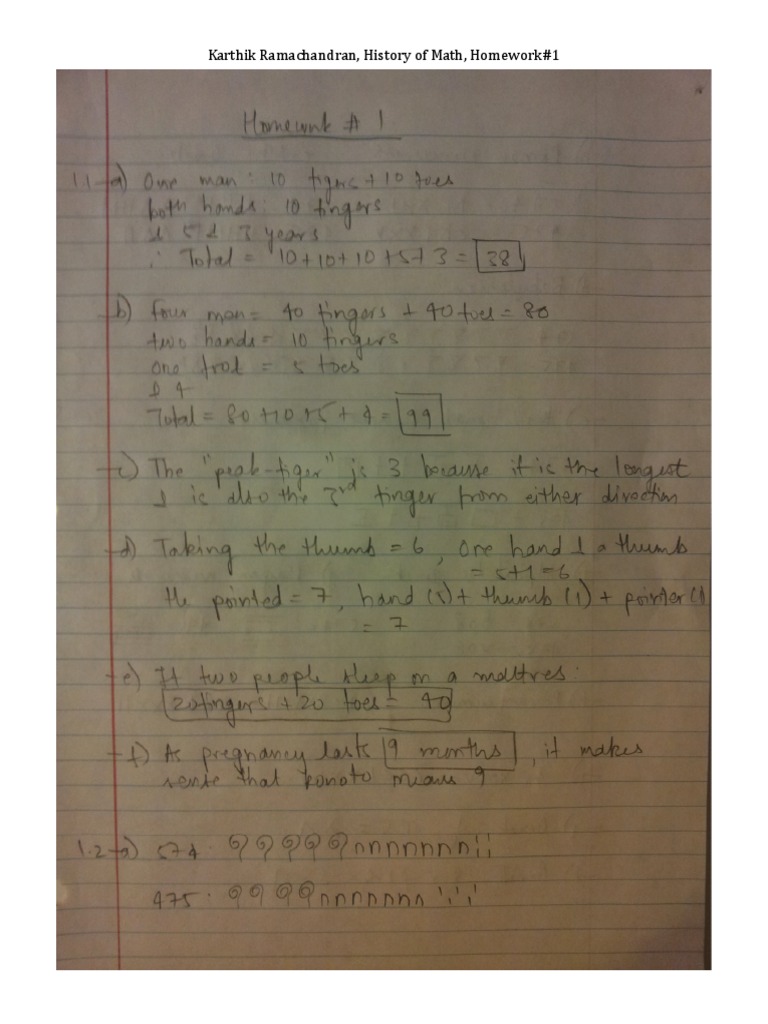 Karthik Ramachandran, History of Math, Homework#1
Homework # 1
1.1-a) One man: 10 figers + 10 toes
both hands: 10 fingers
& 5 & 3 years
∴ Total = 10+10+10+5+3 = 38
b) four man = 40 fingers + 40 toes = 80
two hands = 10 fingers
one = 5 toes
& 4
Total = 80+10+5+4 = 99
c) The "peak-figer" is 3 because it is the longest
& is also the 3rd finger from either direction
d) Taking the thumb = 6, one hand & a thumb
= 5+1=6
the pointed = 7, hand (5)+ thumb (1) + pointer (1
= 7
e) If two people sleep on a mattres.
20fingers + 20 toes = 40
f) As pregnancy lasts 9 months, it makes
sense that konoto means 9
1.2-a) 574.
475.